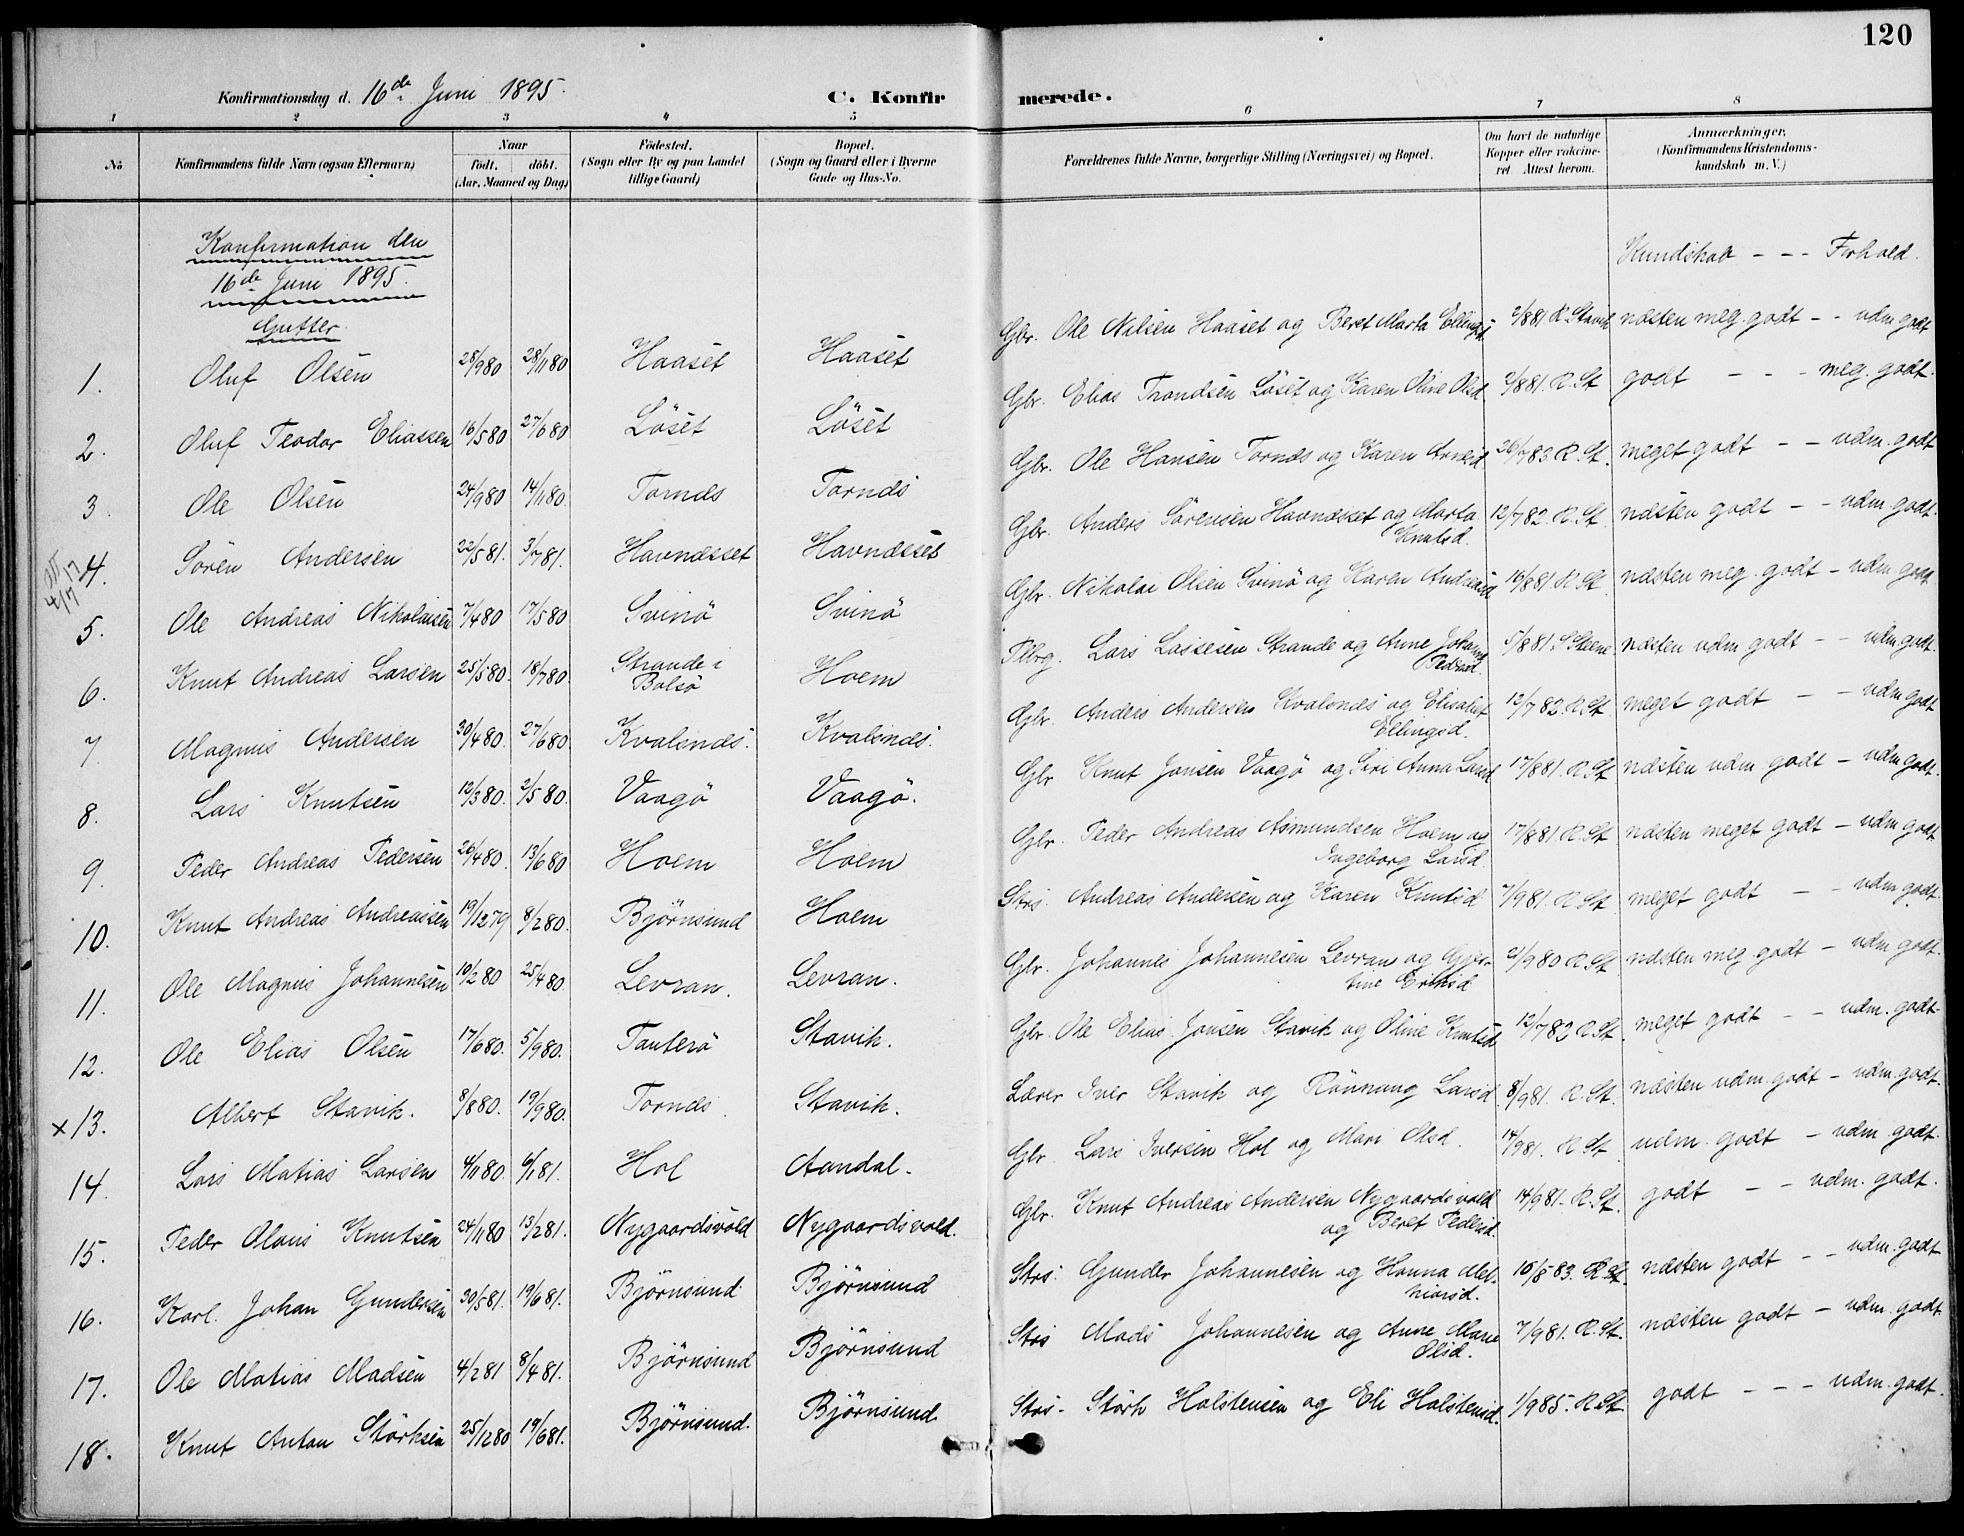 120
Konfirmationsdag d. 16de Juni 1895. C. Konfirmerede.
1 2 3 4 5 6 7 8
No Konfirmandens fulde Navn (ogsaa Efternavn) Naar födt. döbt. (Aar, Maaned og Dag) Födested. (Sogn eller By og paa Landet tillige Gaard) Bopæl. (Sogn og Gaard eller i Byerne Gade og Hus-No. Forældrenes fulde Navne, borgerlige Stilling (Næringsvei) og Bopæl. Om havt de naturlige Kopper eller vakcineret. Attest herom. Anmærkninger, (Konfirmandens Kristendomskundskab m. V.)
Konfirmation den
16de Juni 1895.
Gutter.
Kundskab - - - Forhold.
1. Oluf Olsen 28/9 80 28/11 80 Haaset Haaset Gbr. Ole Nilsen Haaset og Beret Marta Ellingsd 2/8 81 R. Stavik næsten meg. godt - - udm. godt
2. Oluf Teodor Eliassen 16/5 80 27/6 80 Löset Löset Gbr. Elias Trondsen Löset og Karen Oline Olsd 2/8 81. R. St godt - - - meg. godt.
3. Ole Olsen 24/9 80 14/11 80. Tornæs Tornæs Gbr. Ole Hansen Tornæs og Karen Arnesd 26/7 83. R. St. meget godt - - udm. godt
4. Sören Andersen 22/5 81. 3/7 81. Havnæsset Havnæsset Gbr. Anders Sörensen Havnæsset og Marta Knutsd. 12/7 82. R. St næsten godt - - udm. godt.
4/7 17
5. Ole Andreas Nikolaisen 7/4 80 17/5 80 Svinö Svinö Gbr. Nikolai Olsen Svinö og Karen Andreasd 16/8 81 R. St næsten meg. godt - udm. godt
6. Knut Andreas Larsen 25/5 80. 18/7 80. Strande i Bolsö Hoem Lars Lassesen Strande og Anne Johanna Pedersd. 5/8 81. næsten udm. godt - - udm. godt.
7. Magnus Andersen 30/4 80. 27/6 80. Kvalsnæs. Kvalsnæs. Gbr. Anders Andersen Kvalsnæs og Elisabet Ellingsd. 12/7 82. R. St meget godt - - udm. godt
8. Lars Knutsen 12/3 80. 2/5 80. Vaagö Vaagö. Gbr Knut Jonsen Vaagö og Siri Anna Larsd 17/8 81. R. St næsten udm. godt - udm. godt.
9. Peder Andreas Pedersen 26/4 80. 13/6 80 Hoem Hoem Gbr. Peder Andreas Asmundsen Hoem og Ingeborg Larsd 17/8 81. R. St næsten meget godt - udm. godt
10. Knut Andreas Andreassen 19/12 79 8/2 80. Björnsund Hoem Strs. Andreas Andersen og Karen Knutsd 7/9 81. R. St. meget godt - - udm. godt.
11. Ole Magnus Johannesen 10/2 80 25/4 80. Levran. Levran. Gbr. Johannes Johannesen Levran og Gjertine Eriksd 2/9 80 R. St næsten meg. godt - udm. godt.
12. Ole Elias Olsen 17/6 80. 5/9 80. Tauterö Stavik. Gbr Ole Elias Jonsen Stavik og Oline Knutsd 12/7 82 R. St. meget godt - - udm. godt.
x 13. Albert Stavik. 8/8 80. 19/9 80. Tornæs. Stavik. Lærer Iver Stavik og Rönnaug Larsd. 8/9 81. R. St. næsten udm. godt - udm. godt.
14. Lars Matias Larsen 4/11 80. 6/1 81. Hol Aandal. Gbr. Lars Iversen Hol og Mari Olsd. 14/9 81. R. St udm. godt - udm. godt.
15. Peder Olaus Knutsen 24/11 80 13/2 81. Nygaardsvold Nygaardsvold. Gbr. Knut Andreas Andersen Nygaardsvold og Beret Pedersd. 14/9 81. R. St. godt - - udm. godt.
16. Karl Johan Gundersen 30/5 81. 19/6 81. Björnsund Björnsund Strs. Gunder Johannesen og Hanna Melkiorsd. 10/8 83. R. St. næsten godt - - udm. godt
17. Ole Matias Madsen 4/2 81 8/4 81. Björnsund Björnsund Strs Mads Johannesen og Anne Marie Olsd. 7/9 81. R. St. næsten godt - udm. godt.
18. Knut Anton Störksen 25/12 80 19/6 81. Björnsund. Björnsund Strs. Störk Holstensen og Eli Holstensd. 1/9 85. R. St godt - - - udm. godt.